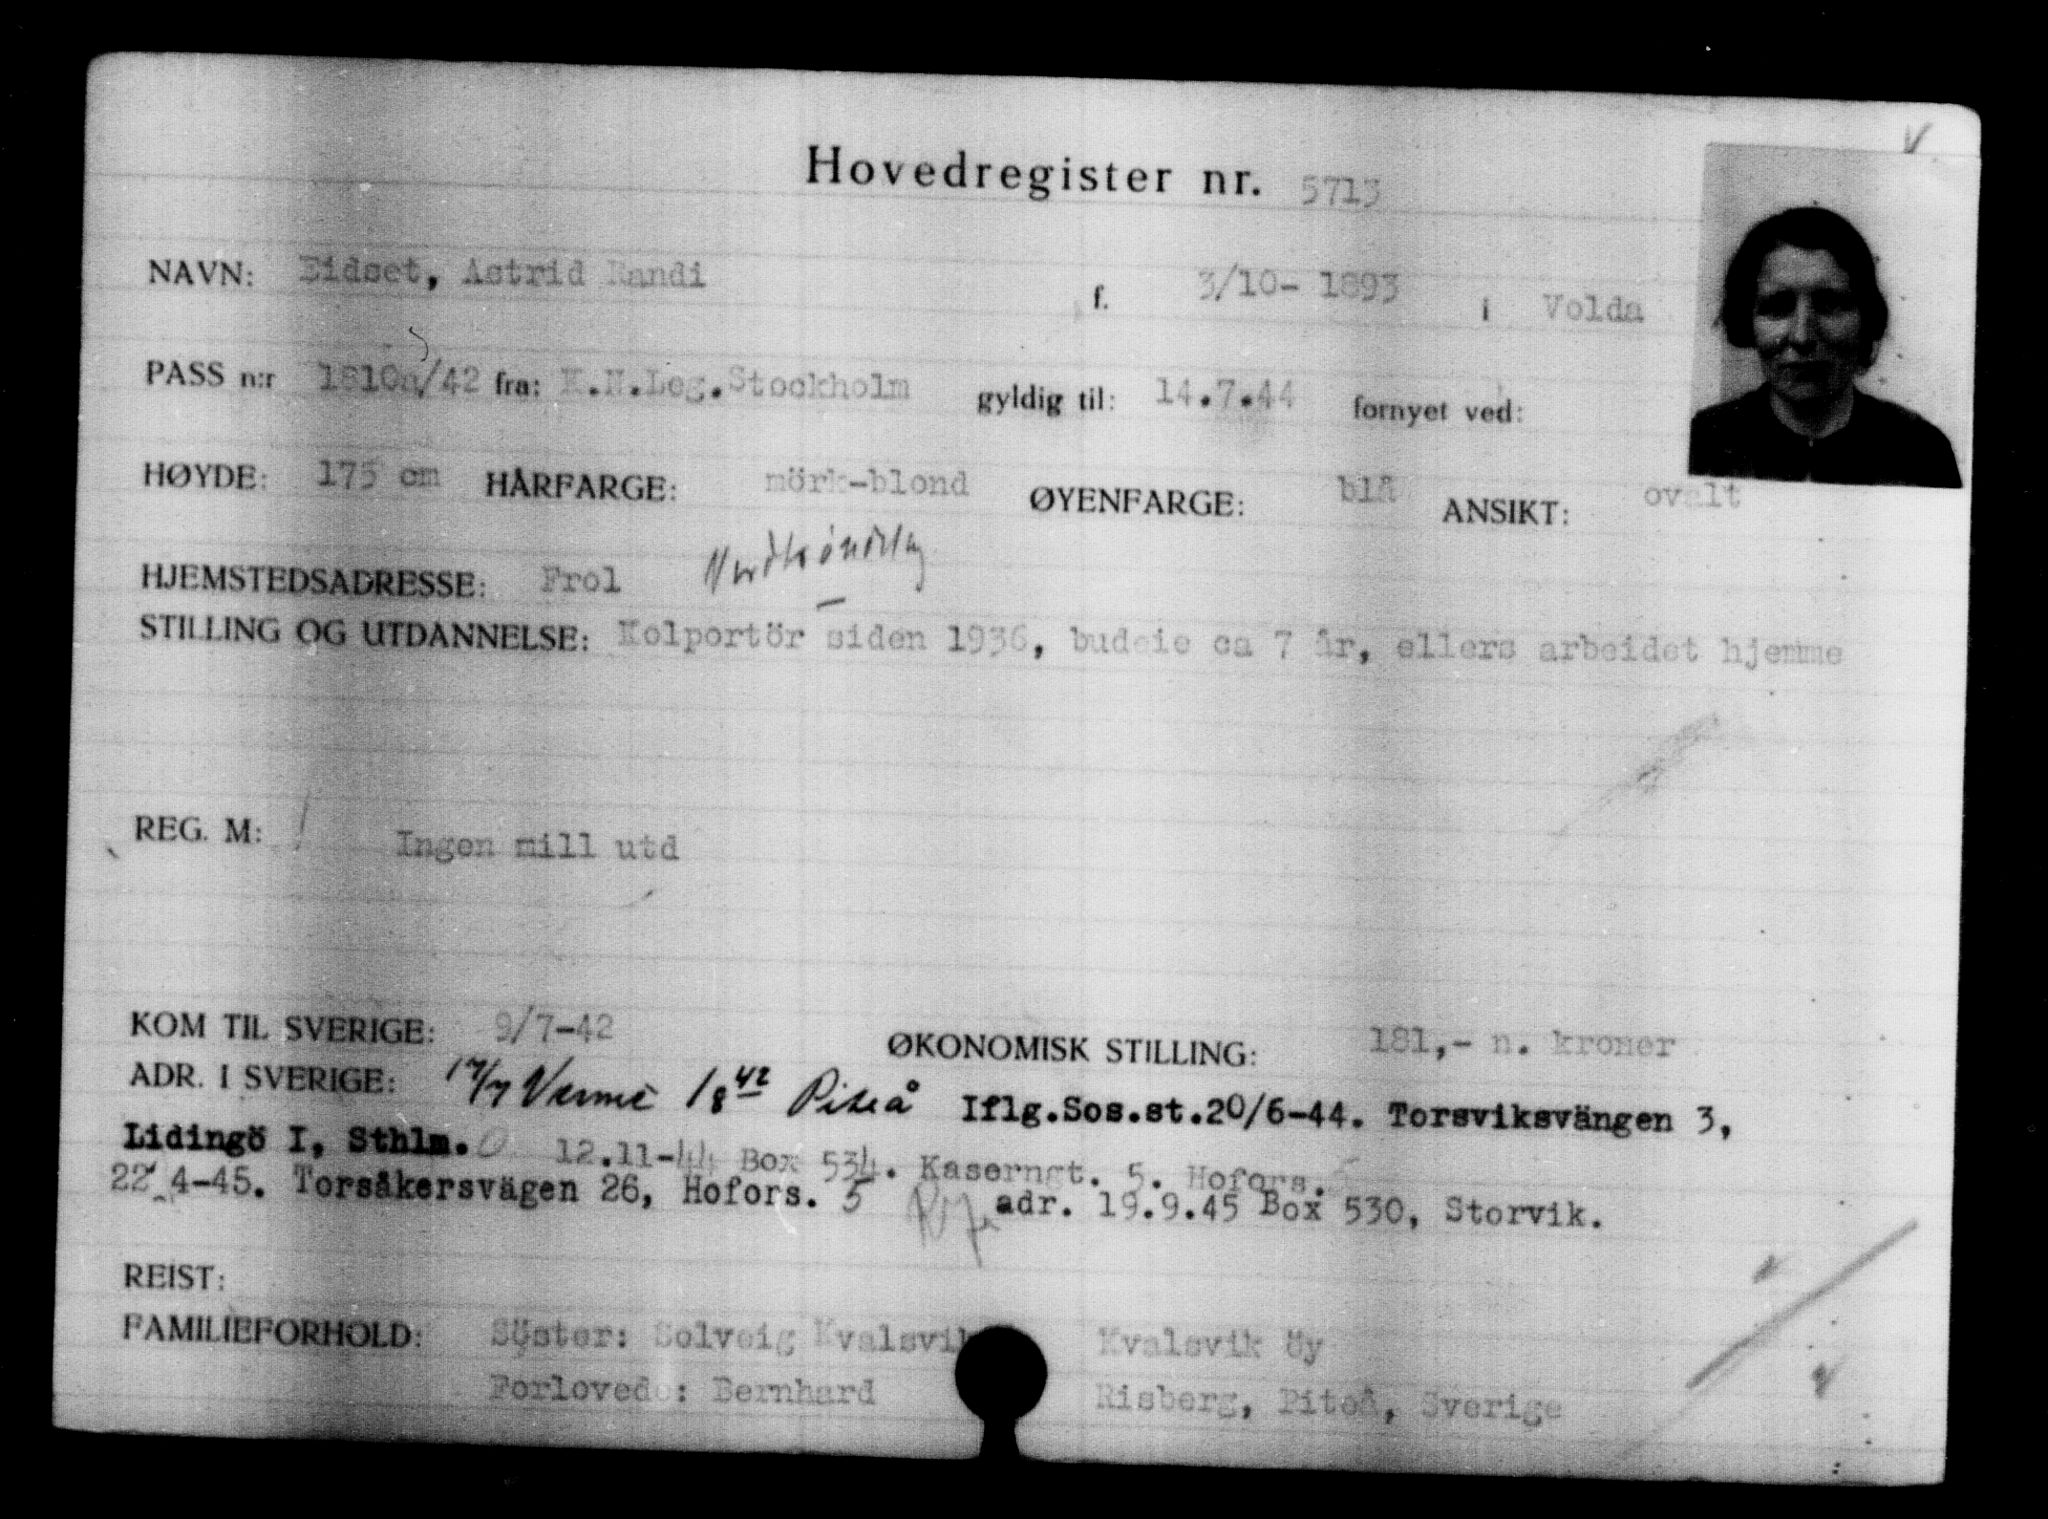 Hovedregister nr. 5713
NAVN: Eidset, Astrid Randi f. 3/10- 1893 i Volda
PASS n:r 1810a/42 fra: K.N.Leg.Stockholm gyldig til: 14.7.44 fornyet ved:
HØYDE: 175 cm HÅRFARGE: mörk-blond ØYENFARGE: blå ANSIKT: ovalt
HJEMSTEDSADRESSE: Frol Nordtrøndelag
STILLING OG UTDANNELSE: Kolportör siden 1936, budeie ca 7 år, ellers arbeidet hjemme
REG. M: Ingen mill utd
KOM TIL SVERIGE: 9/7-42 ØKONOMISK STILLING: 181,- n. kroner
ADR. I SVERIGE: 17/7 1/8 42 Piteå Iflg.Sos.st.20/6-44. Torsviksvängen 3,
Lidingö I, Sthlm. 12.11-44 Box 534. Kaserngt. 5. Hofors.
22 4-45. Torsåkersvägen 26, Hofors. 5 adr. 19.9.45 Box 530, Storvik.
REIST:
FAMILIEFORHOLD: Söster: Solveig Kvalsvik Kvalsvik Öy
Forlovede: Bernhard Risberg, Piteå, Sverige